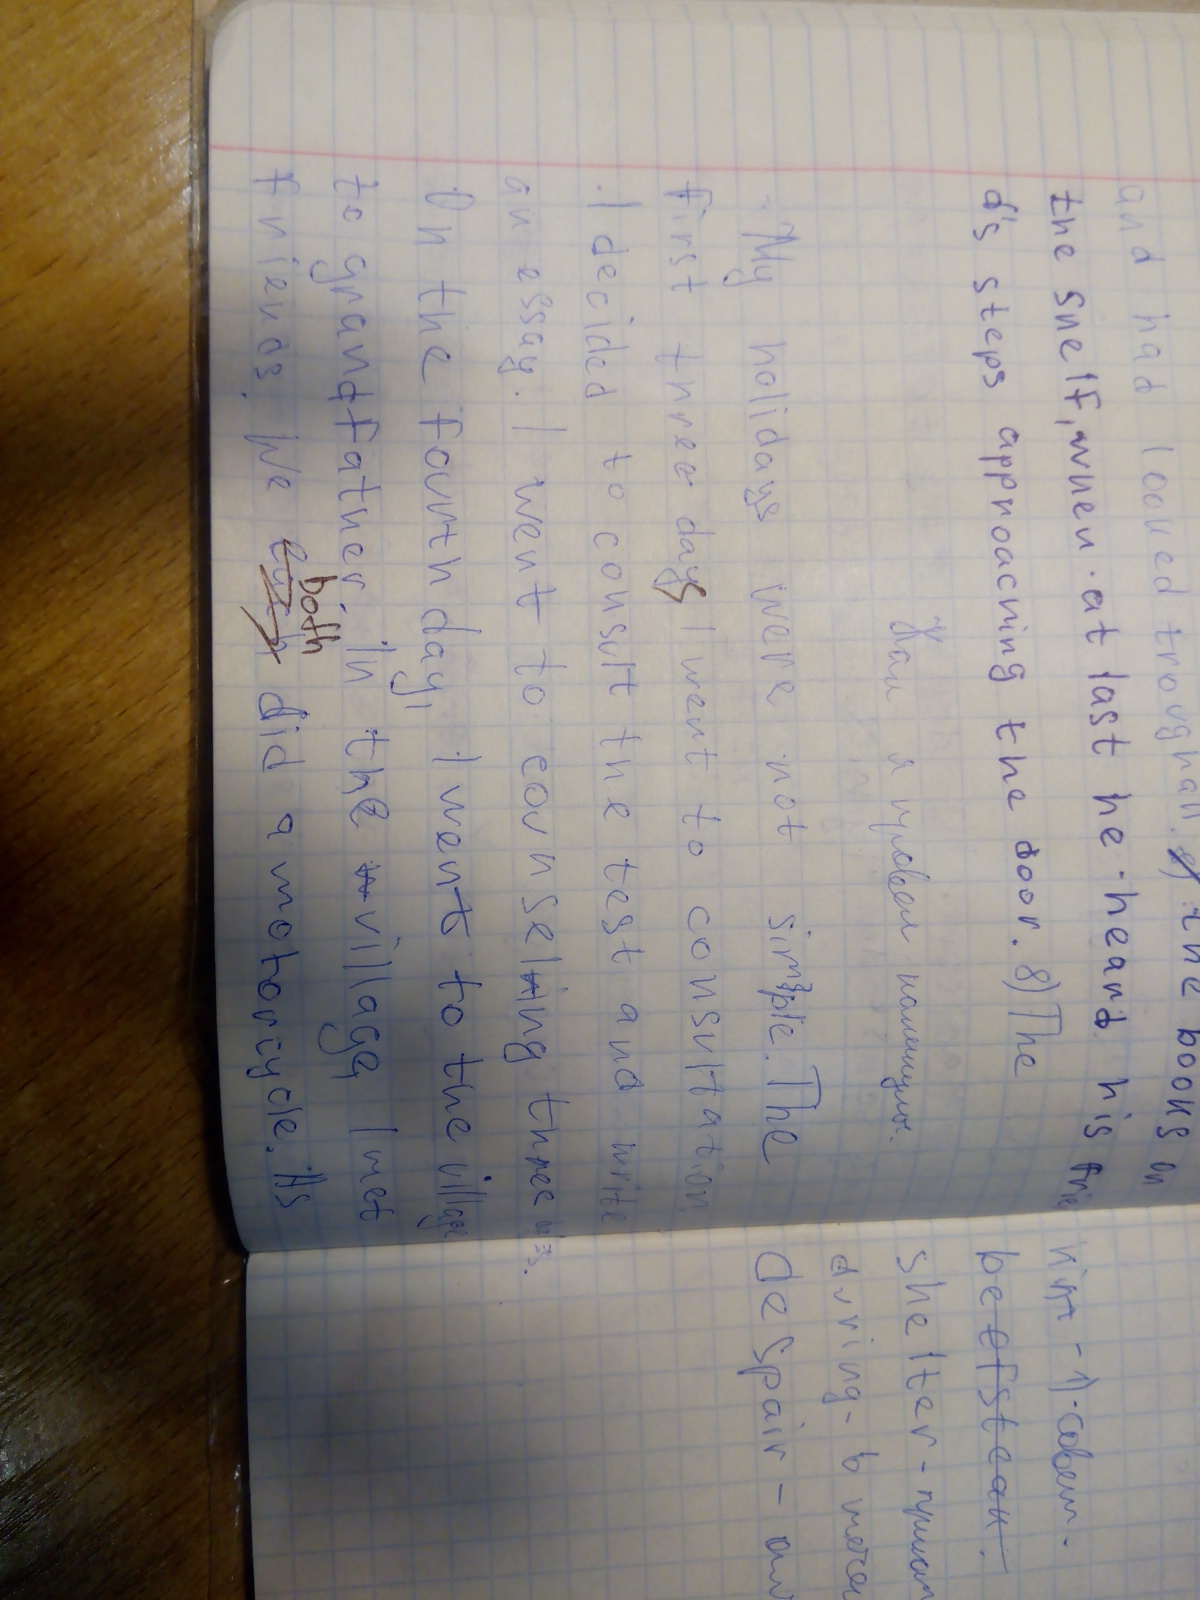 and had looked troughan. the books on
the shelf, when at last he heard his frie
d's steps approaching the door. 8) The
Как я провел каникулы.
My holidays were not simple. The
first three days I went to consultation
. I decided to consult the test and write
an essay. I went to counseling three
On the fourth day, I went to the village
to grandfather. In the village, I met
friends. We both did a motoricycle. As
hint - 1) совет.
beefsteak.
shelter - приют
during - в тече
despair -